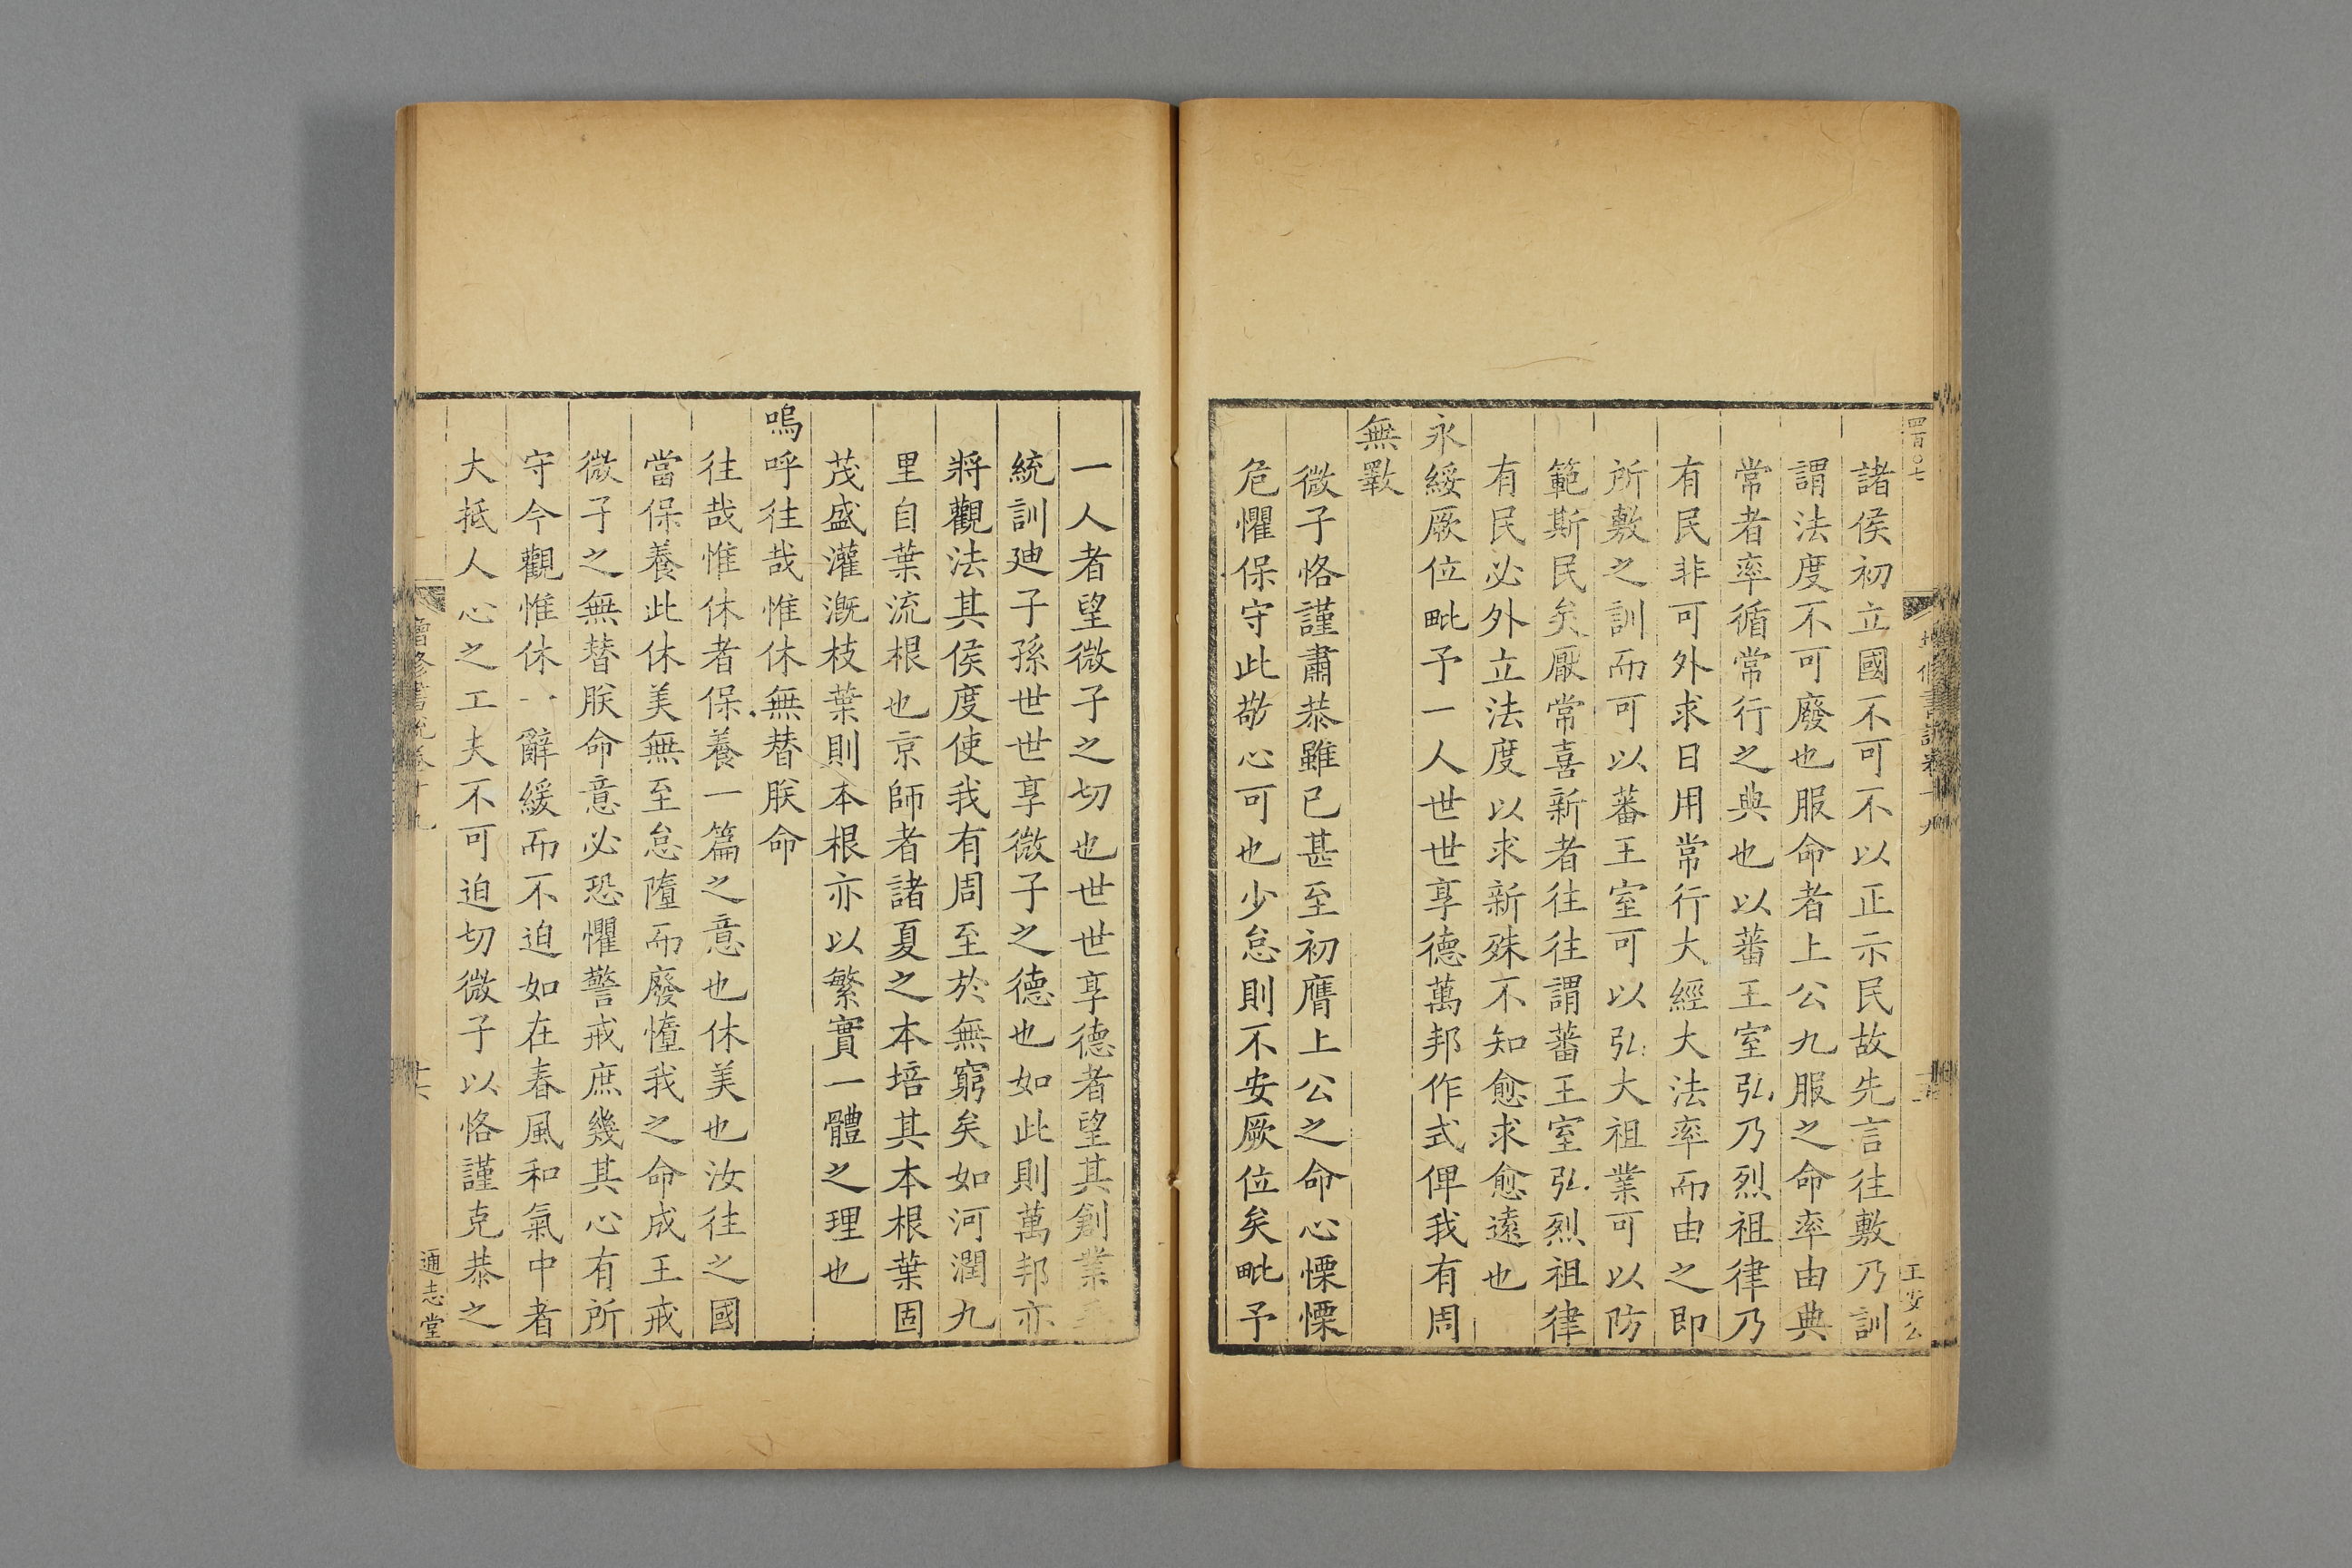 四百〇七
諸侯初立國不可不以正示民故先言往敷乃訓
謂法度不可廢也服命者上公九服之命率由典
常者率循常行之典也以蕃王室弘乃烈祖律乃
有民非可外求日用常行大經大法率而由之即
所敷之訓而可以蕃王室可以弘大祖業可以防
範斯民矣厭常喜新者往往謂蕃王室弘烈祖律
有民必外立法度以求新殊不知愈求愈遠也
永綏厥位毗予一人世世享德萬邦作式俾我有周
無斁
微子恪謹肅恭雖已甚至初膺上公之命心慄慄
危懼保守此敬心可也少怠則不安厥位矣毗予
一人者望微子之切也世世享德者望其創業
統訓廸子孫世世享微子之德也如此則萬邦亦
將觀法其侯度使我有周至於無窮矣如河潤九
里自葉流根也京師者諸夏之本培其本根葉固
茂盛灌漑枝葉則本根亦以繁實一體之理也
嗚呼往哉惟休無替朕命
往哉惟休者保養一篇之意也休美也汝往之國
當保養此休美無至怠墮而廢惰我之命成王戒
微子之無替朕命意必恐懼警戒庶幾其心有所
守今觀惟休一辭緩而不迫如在春風和氣中者
大抵人心之工夫不可迫切微子以恪謹克恭之
增修書說卷十九
通志堂